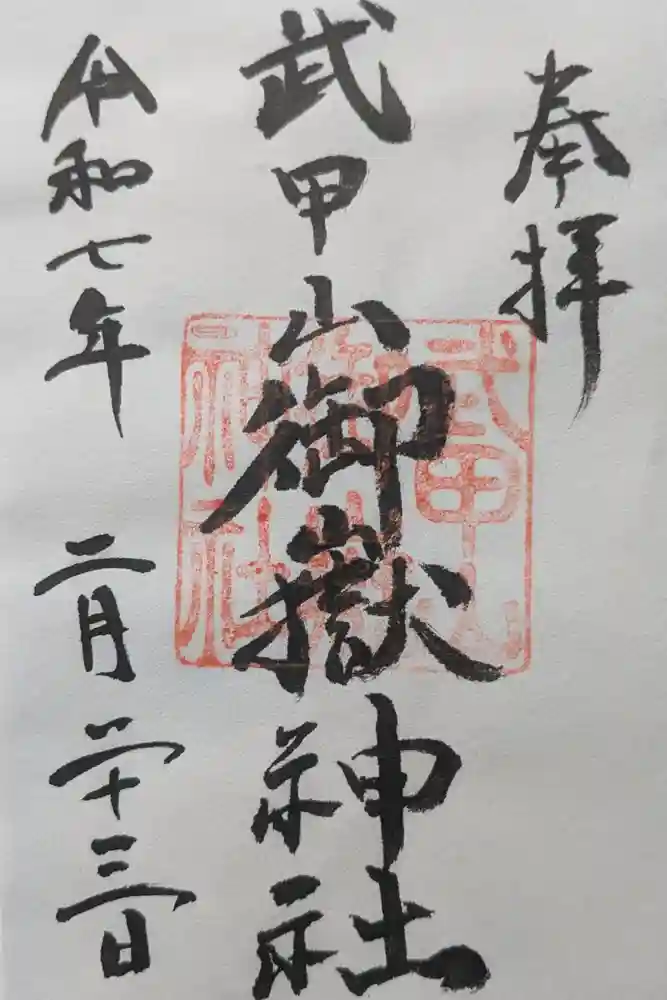 奉拝
武甲山御嶽神社
令和七年 二月二十三日
武甲山
御嶽
神社